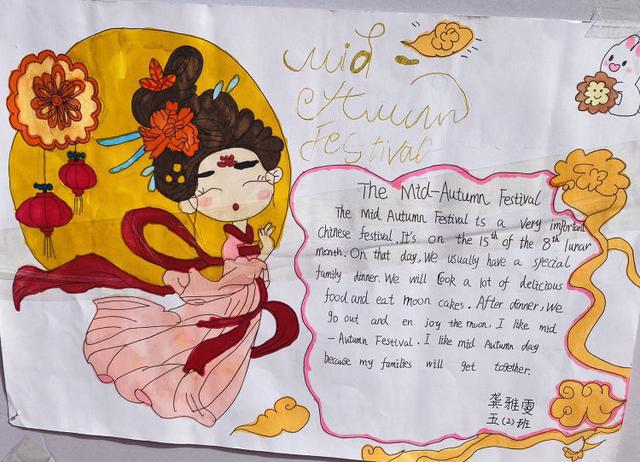 Mid
Autumn
Festival
The Mid-Autumn Festival
The Mid Autumn Festival is a very important
Chinese festival. It's on the 15th of the 8th lunar
month. On that day, We usually have a special
family dinner. We will Cook a lot of delicious
food and eat moon cakes. After dinner, We
go out and en joy the moon. I like mid
-Autumn Festival. I like mid Autumn day
because my families will get together.
龚雅雯
五(2)班